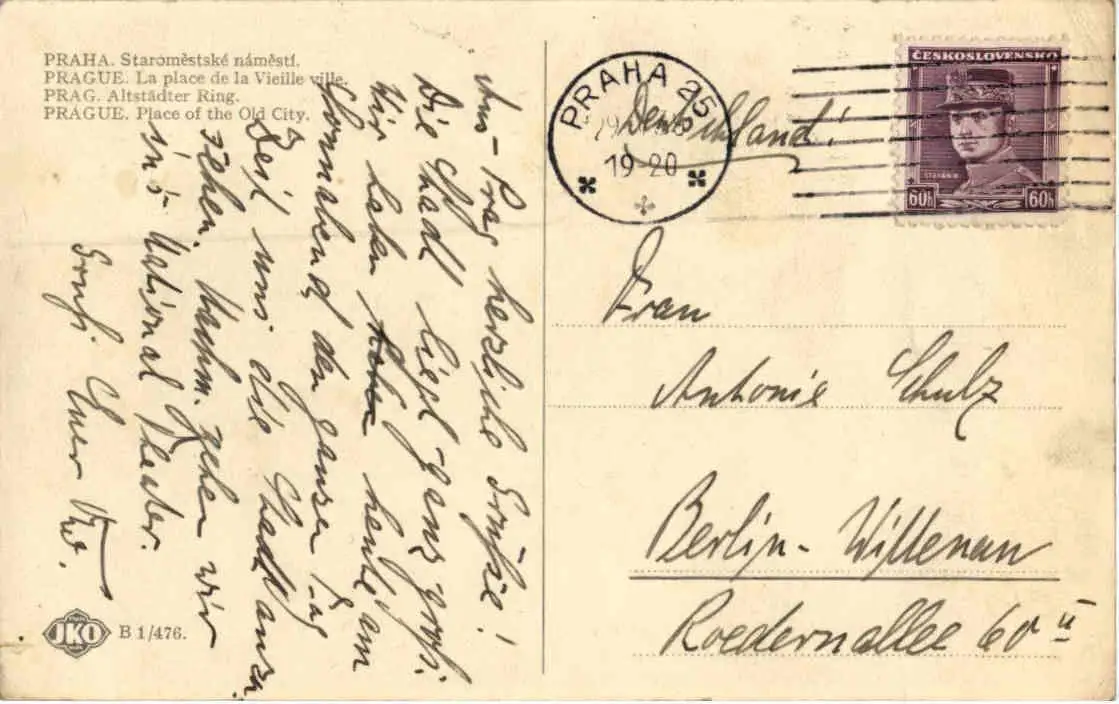 PRAHA. Staroměstské náměstí.
PRAGUE. La place de la Vieille ville.
PRAG. Altstädter Ring.
PRAGUE. Place of the Old City.
Aus Prag herzliche Grüße!
Die Stadt liegt ganz groß.
Wir haben heute am
Sonnabend den ganzen Tag
Zeit uns die Stadt anzu
sehen. Nachm. gehen wir
ins National Theater.
Gruß Euer
JKO
B 1/476.
PRAHA 25
19-20
Deutschland!
ČESKOSLOVENSKO
ŠTEFÁNIK
60h 60h
Frau
Antonie Schulz
Berlin-Wittenau
Roedernallee 60 II